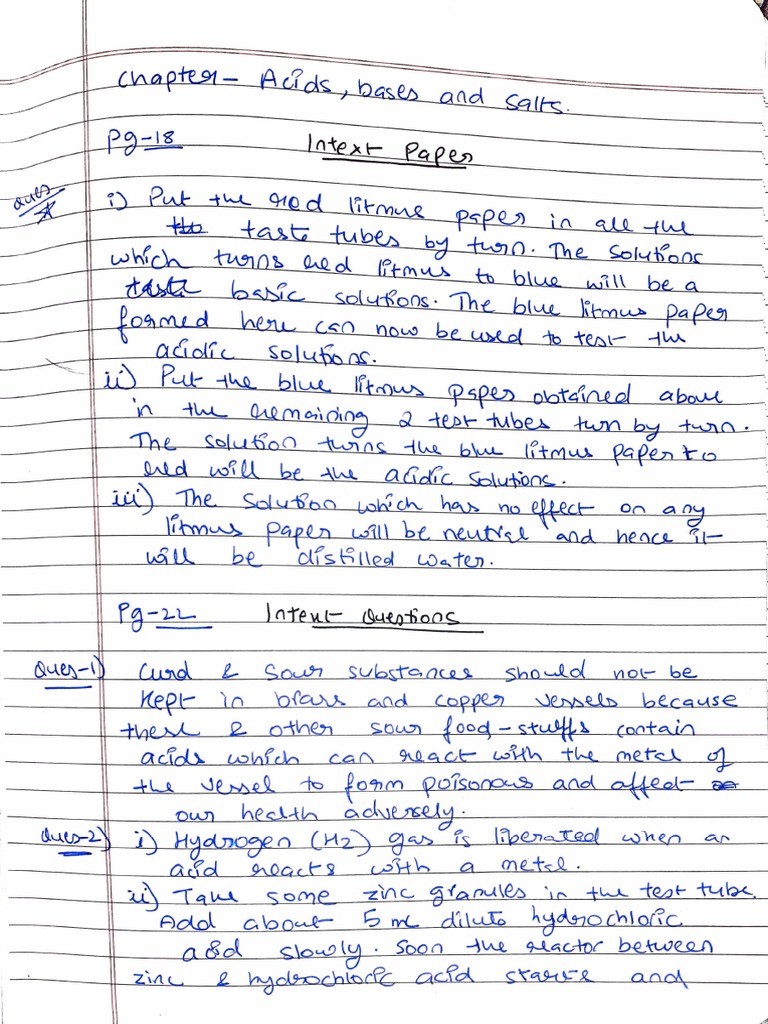 Chapter- Acids, bases and salts.
Pg-18 Intext Paper
Ques
i) Put the red litmus paper in all the
taste tubes by turn. The solutions
which turns red litmus to blue will be a
basic solutions. The blue litmus paper
formed here can now be used to test the
acidic solutions.
ii) Put the blue litmus paper obtained above
in the remaining 2 test tubes turn by turn.
The solution turns the blue litmus paper to
red will be the acidic solutions.
iii) The solution which has no effect on any
litmus paper will be neutral and hence it
will be distilled water.
Pg-22 Intext Questions
Ques-1) Curd & sour substances should not be
kept in brass and copper vessels because
these & other sour food-stuffs contain
acids which can react with the metal of
the vessel to form poisonous and affect
our health adversely.
Ques-2) i) Hydrogen (H2) gas is liberated when an
acid reacts with a metal.
ii) Take some zinc granules in the test tube.
Add about 5 ml dilute hydrochloric
acid slowly. Soon the reactor between
zinc & hydrochloric acid starts and